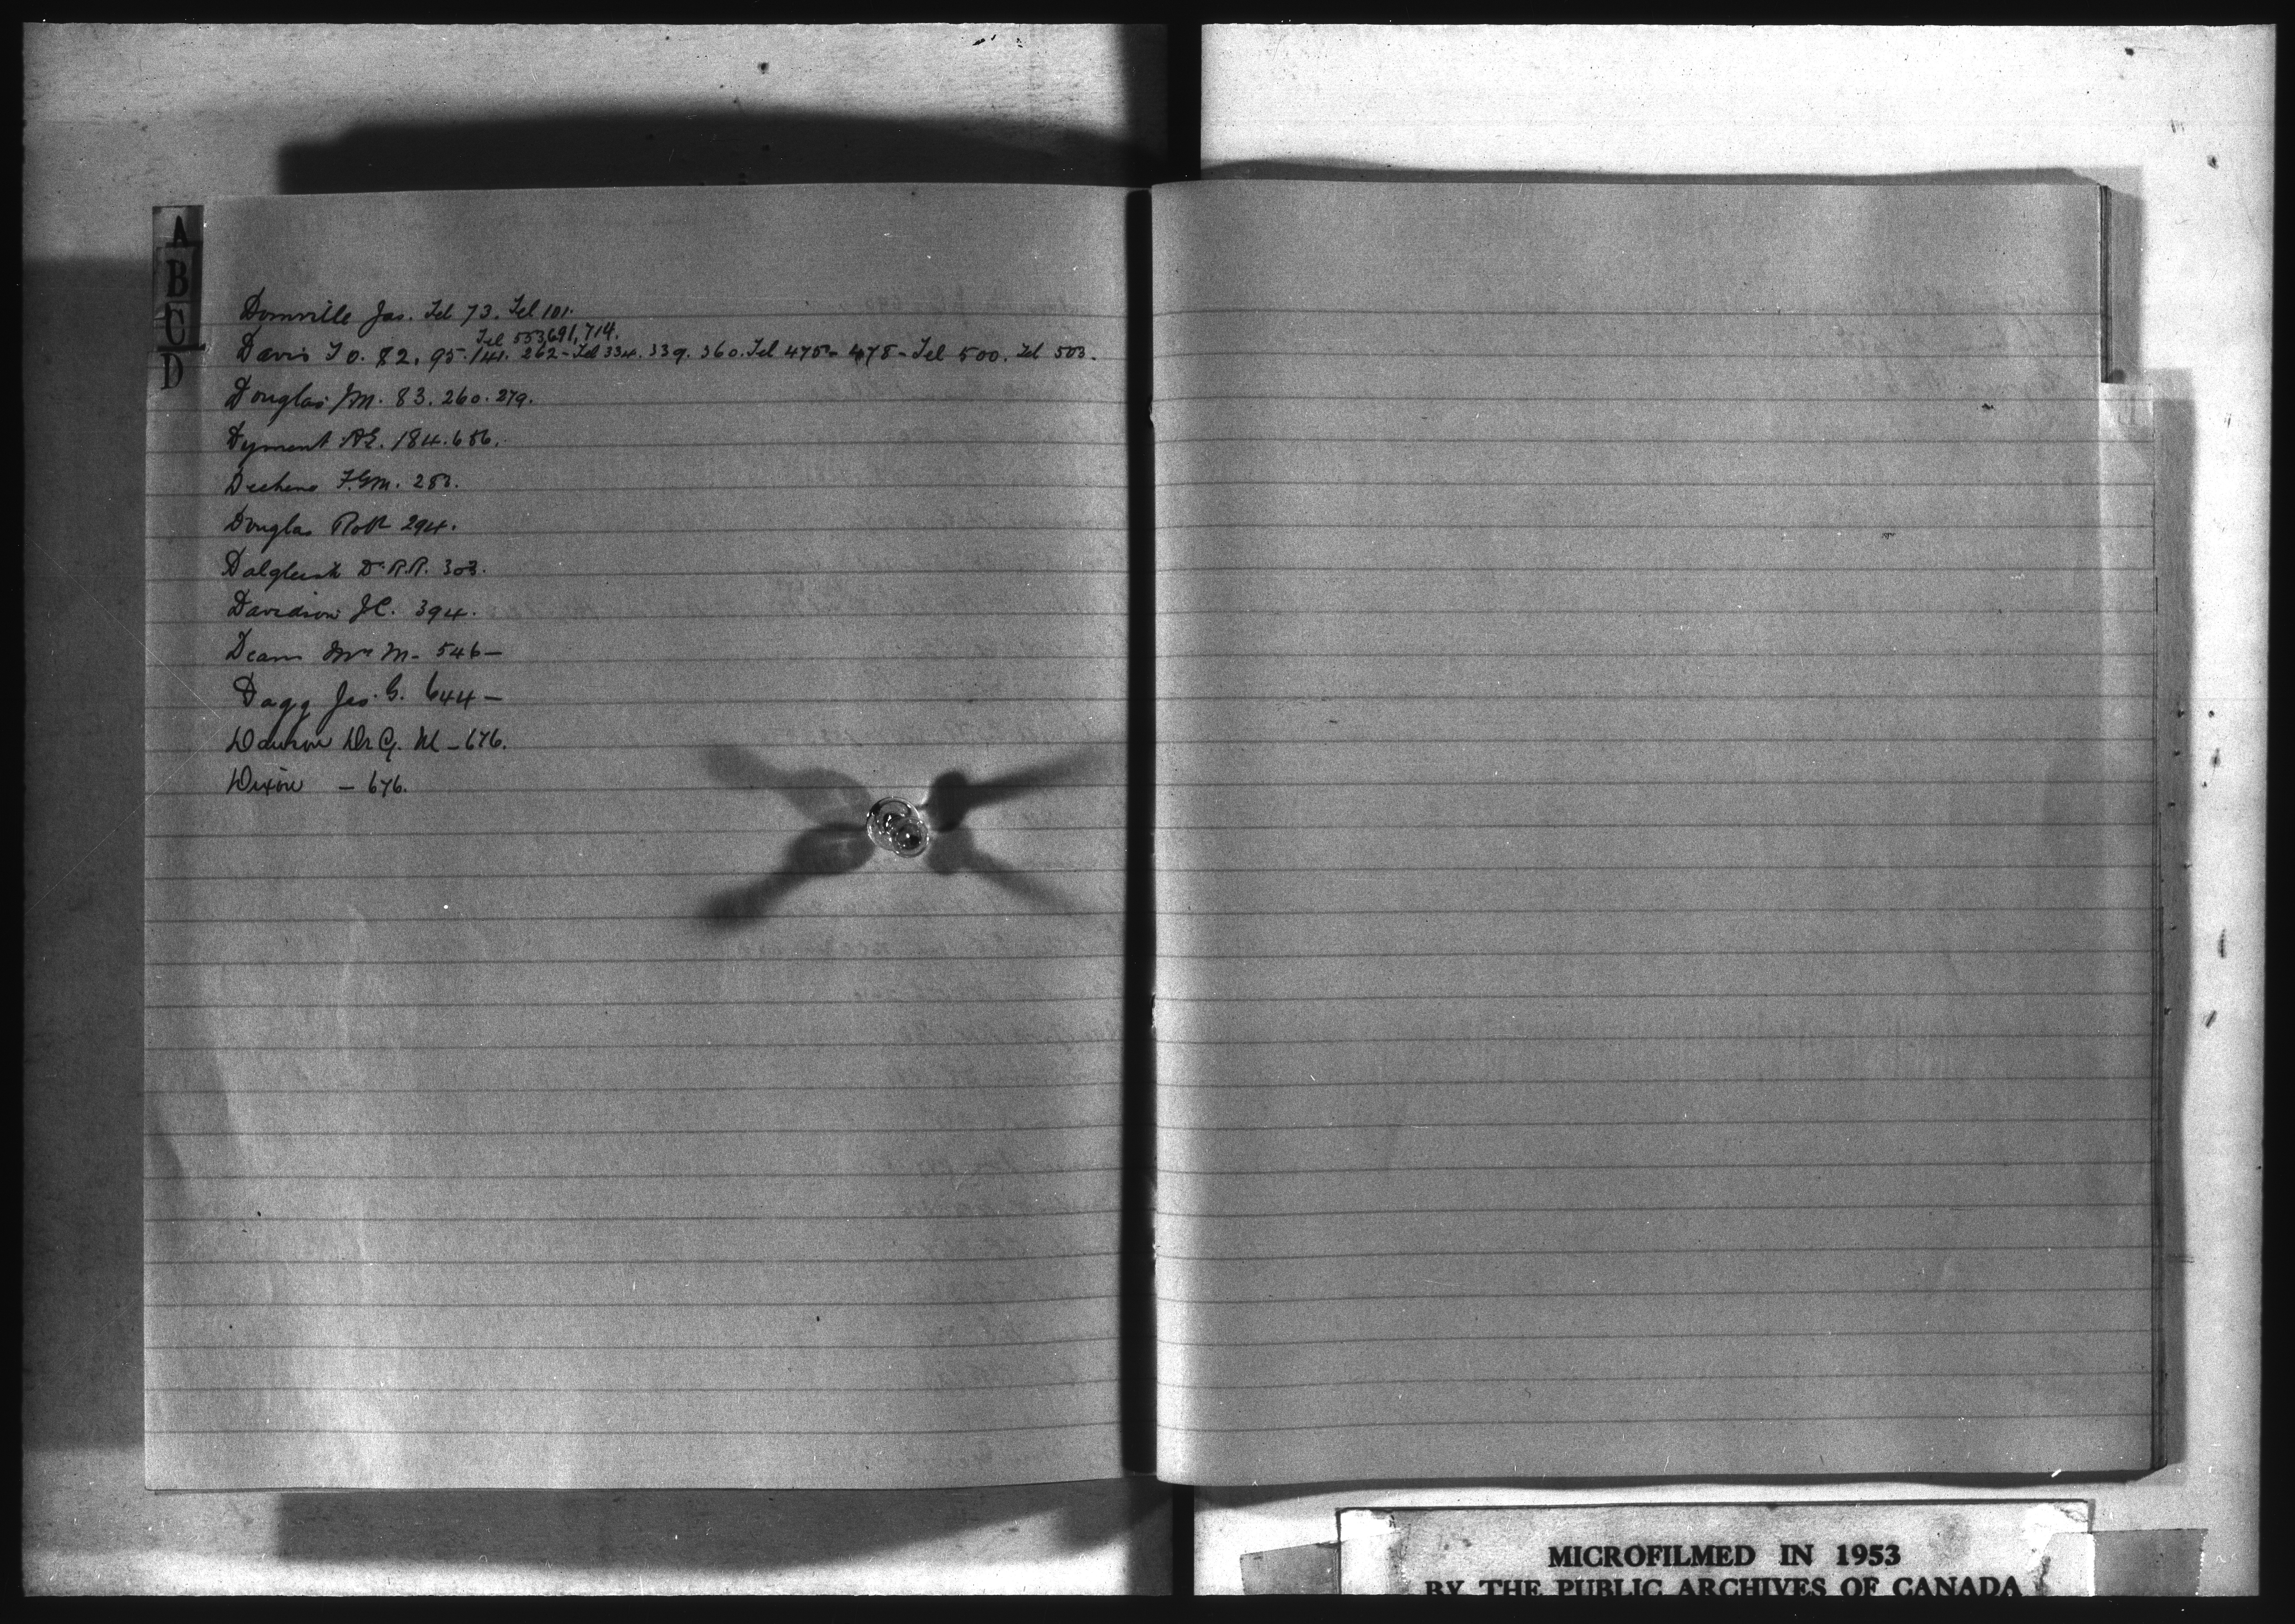 A
B
C
D
Domville Jas. Tel 73. Tel 101.
Tel 553, 691, 714.
Davis T D. 82, 95. 141. 262 - Tel 334. 339. 360. Tel 475 - 478 - Tel 500. Tel 503.
Douglas J.M. 83. 260. 279.
Dyment A.E. 184. 656.
Dechene F.G.M. 283.
Douglas Robt 294.
Dalgleish Dr R.R. 303.
Davidson J.C. 394.
Deans Mrs M - 546 -
Dagg Jas G. 644 -
Dawson Dr G. M - 676.
Dixon - 676.
MICROFILMED IN 1953
BY THE PUBLIC ARCHIVES OF CANADA